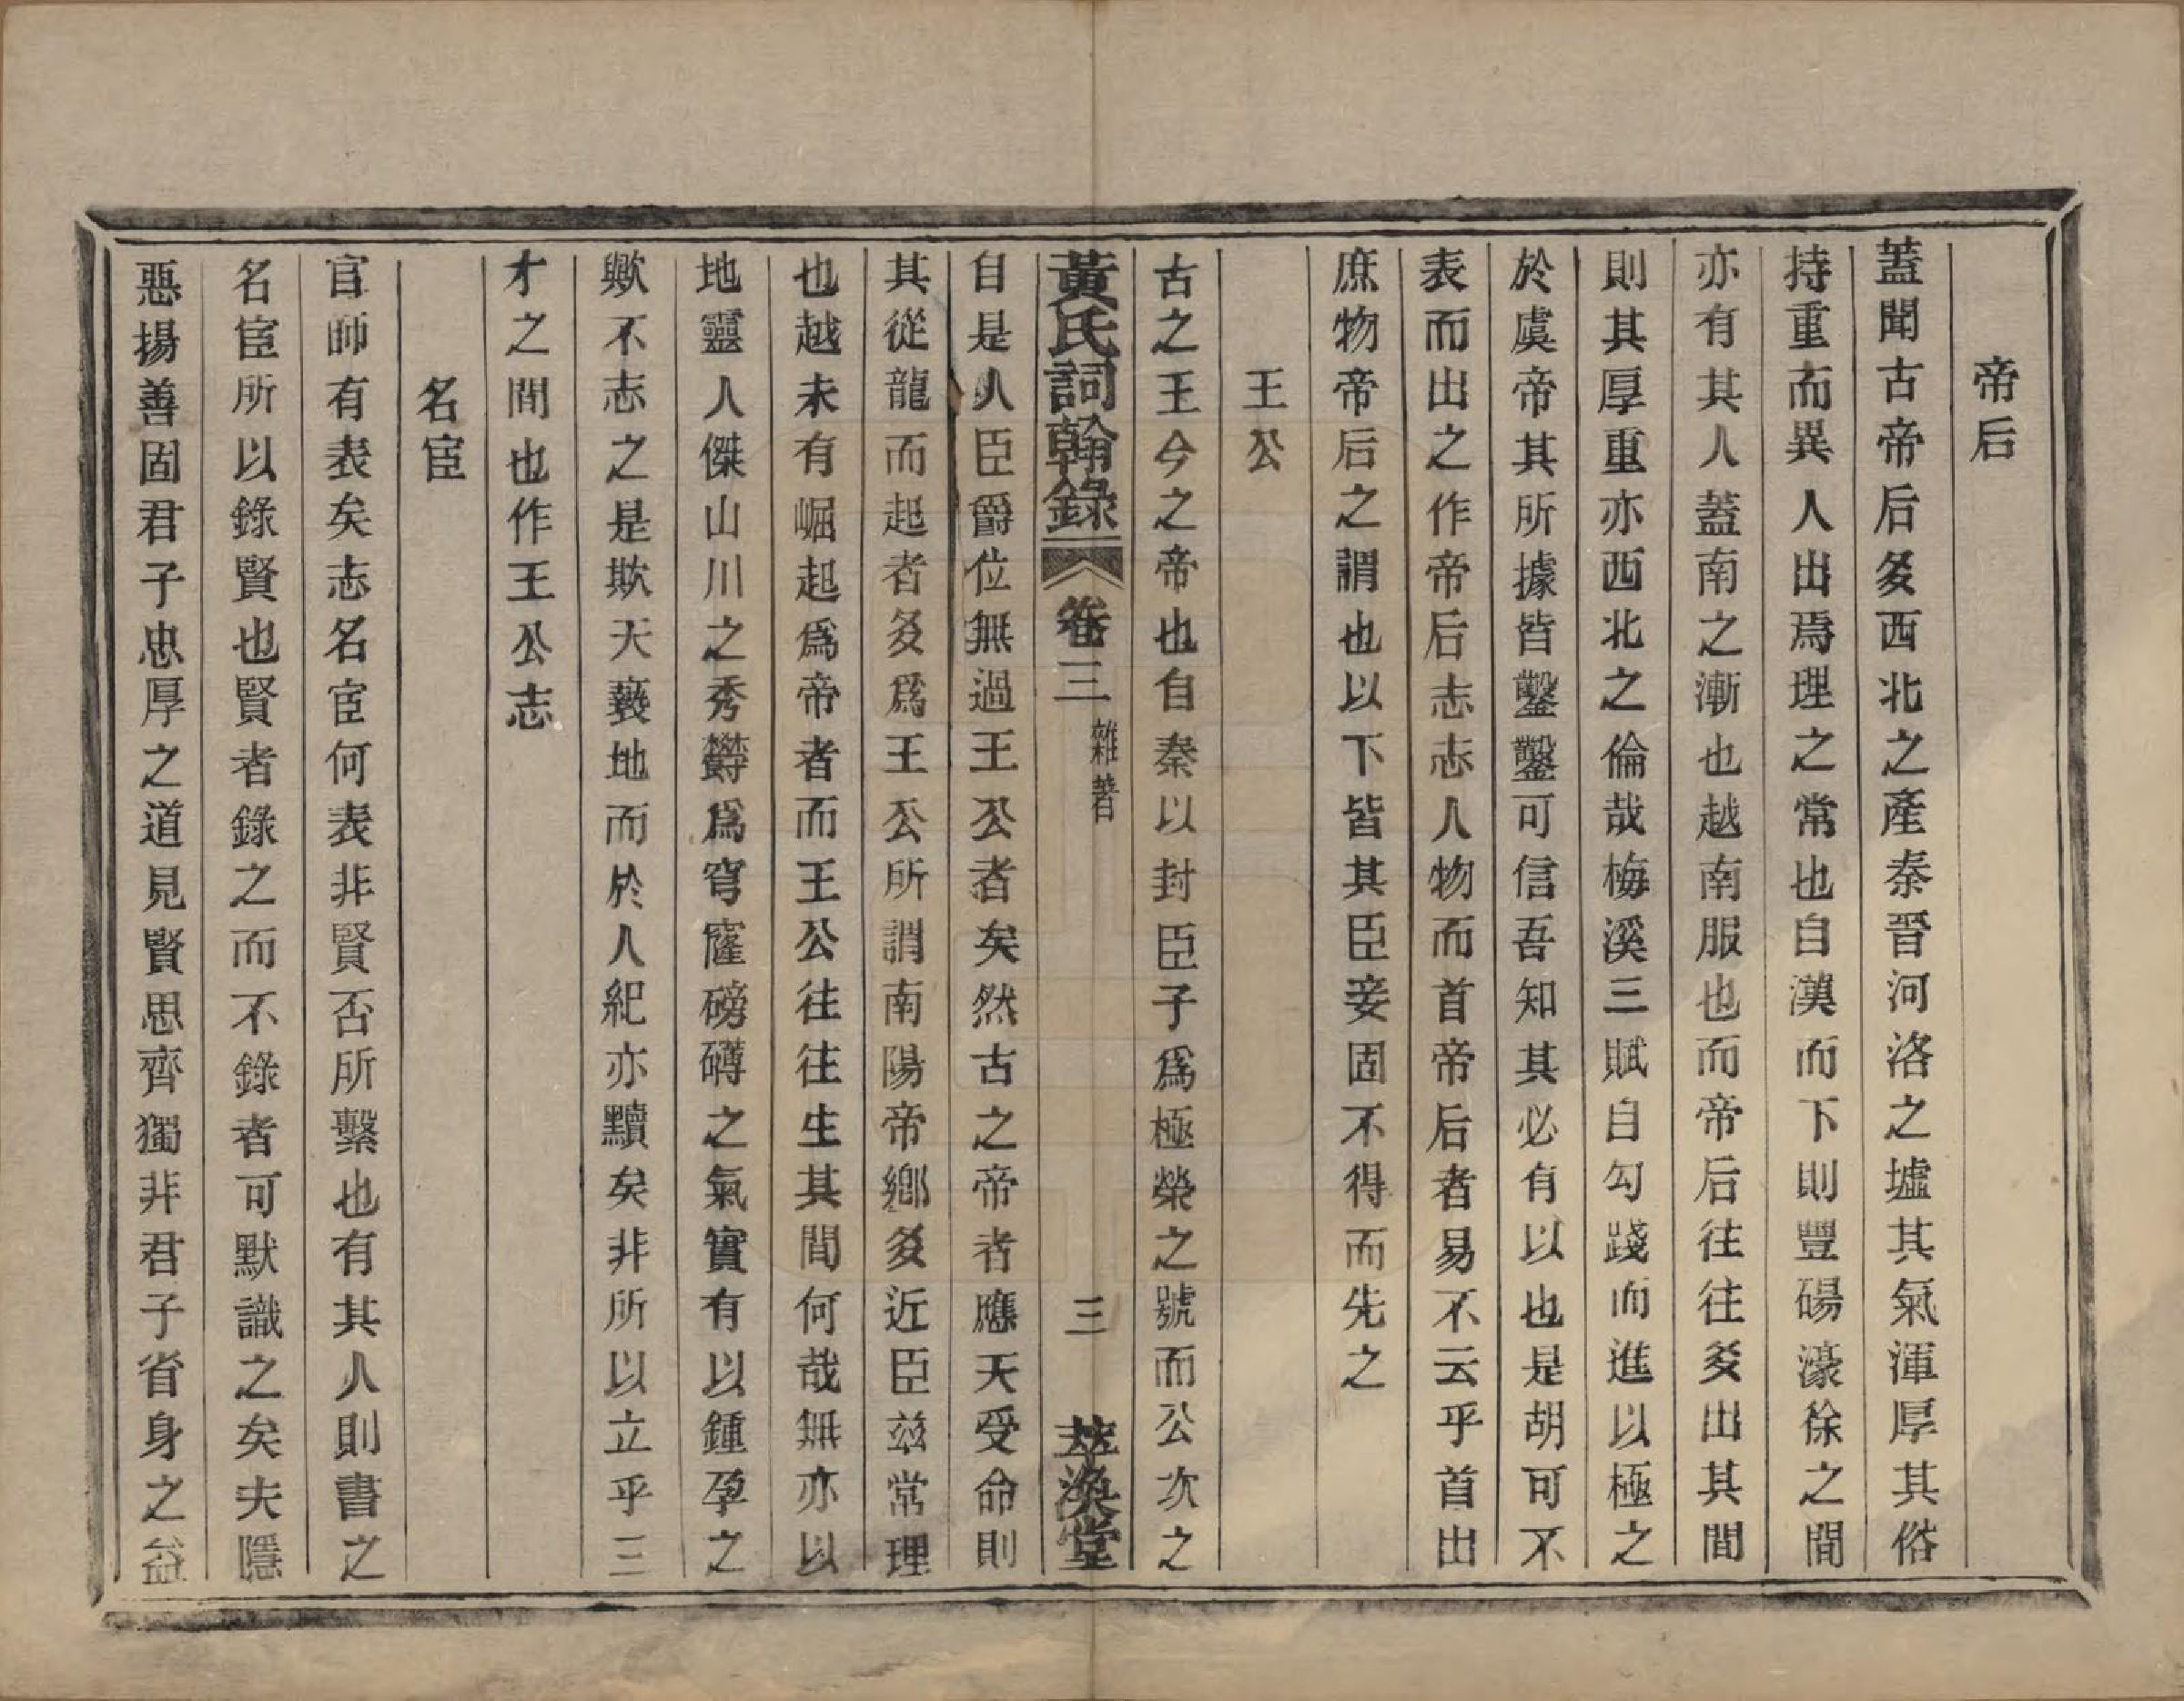 帝后
蓋聞古帝后多西北之產秦晉河洛之墟其氣渾厚其俗
持重而異人出焉理之常也自漢而下則豐碭濠徐之間
亦有其人蓋南之漸也越南服也而帝后往往多出其間
則其厚重亦西北之倫哉梅溪三賦自勾踐而進以極之
於虞帝其所據皆鑿鑿可信吾知其必有以也是胡可不
表而出之作帝后志志人物而首帝后者易不云乎首出
庶物帝后之謂也以下皆其臣妾固不得而先之
王公
古之王今之帝也自秦以封臣子爲極榮之號而公次之
黃氏詞翰錄 卷三 雜著 三 萃渙堂
自是人臣爵位無過王公者矣然古之帝者應天受命則
其從龍而起者多爲王公所謂南陽帝鄉多近臣兹常理
也越未有崛起爲帝者而王公往往生其間何哉無亦以
地靈人傑山川之秀欝爲穹窿磅礴之氣實有以鍾孕之
歟不志之是欺天褻地而於人紀亦黷矣非所以立乎三
才之間也作王公志
名宦
官師有表矣志名宦何表非賢否所繫也有其人則書之
名宦所以錄賢也賢者錄之而不錄者可默識之矣夫隱
惡揚善固君子忠厚之道見賢思齊獨非君子省身之益